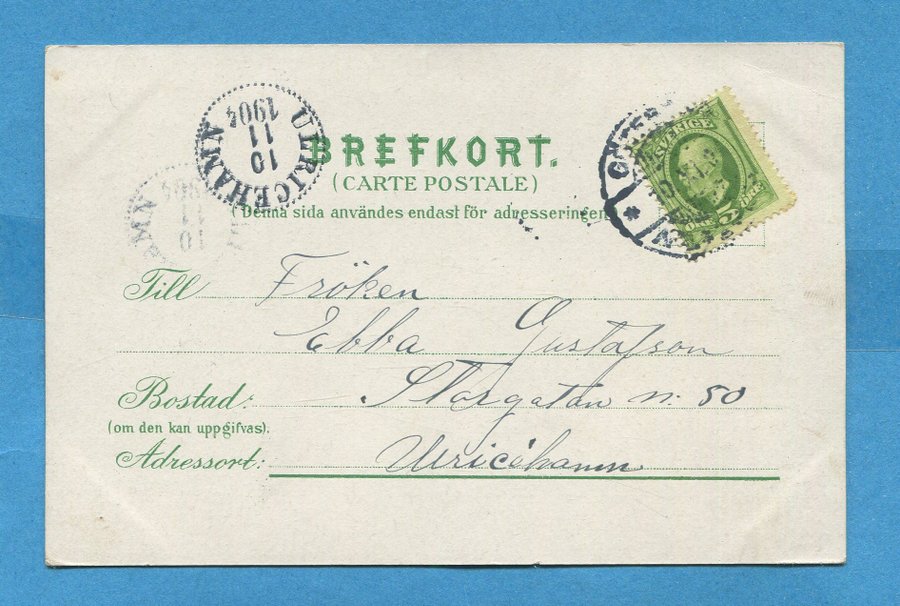 ULRICEHAMN
10
11
1904
BREFKORT.
(CARTE POSTALE)
(Denna sida användes endast för adresseringen
SVERIGE
5
Till Fröken
Ebba Gustafson
Bostad: Storgatan n: 50
(om den kan uppgifvas).
Adressort: Ulricehamn